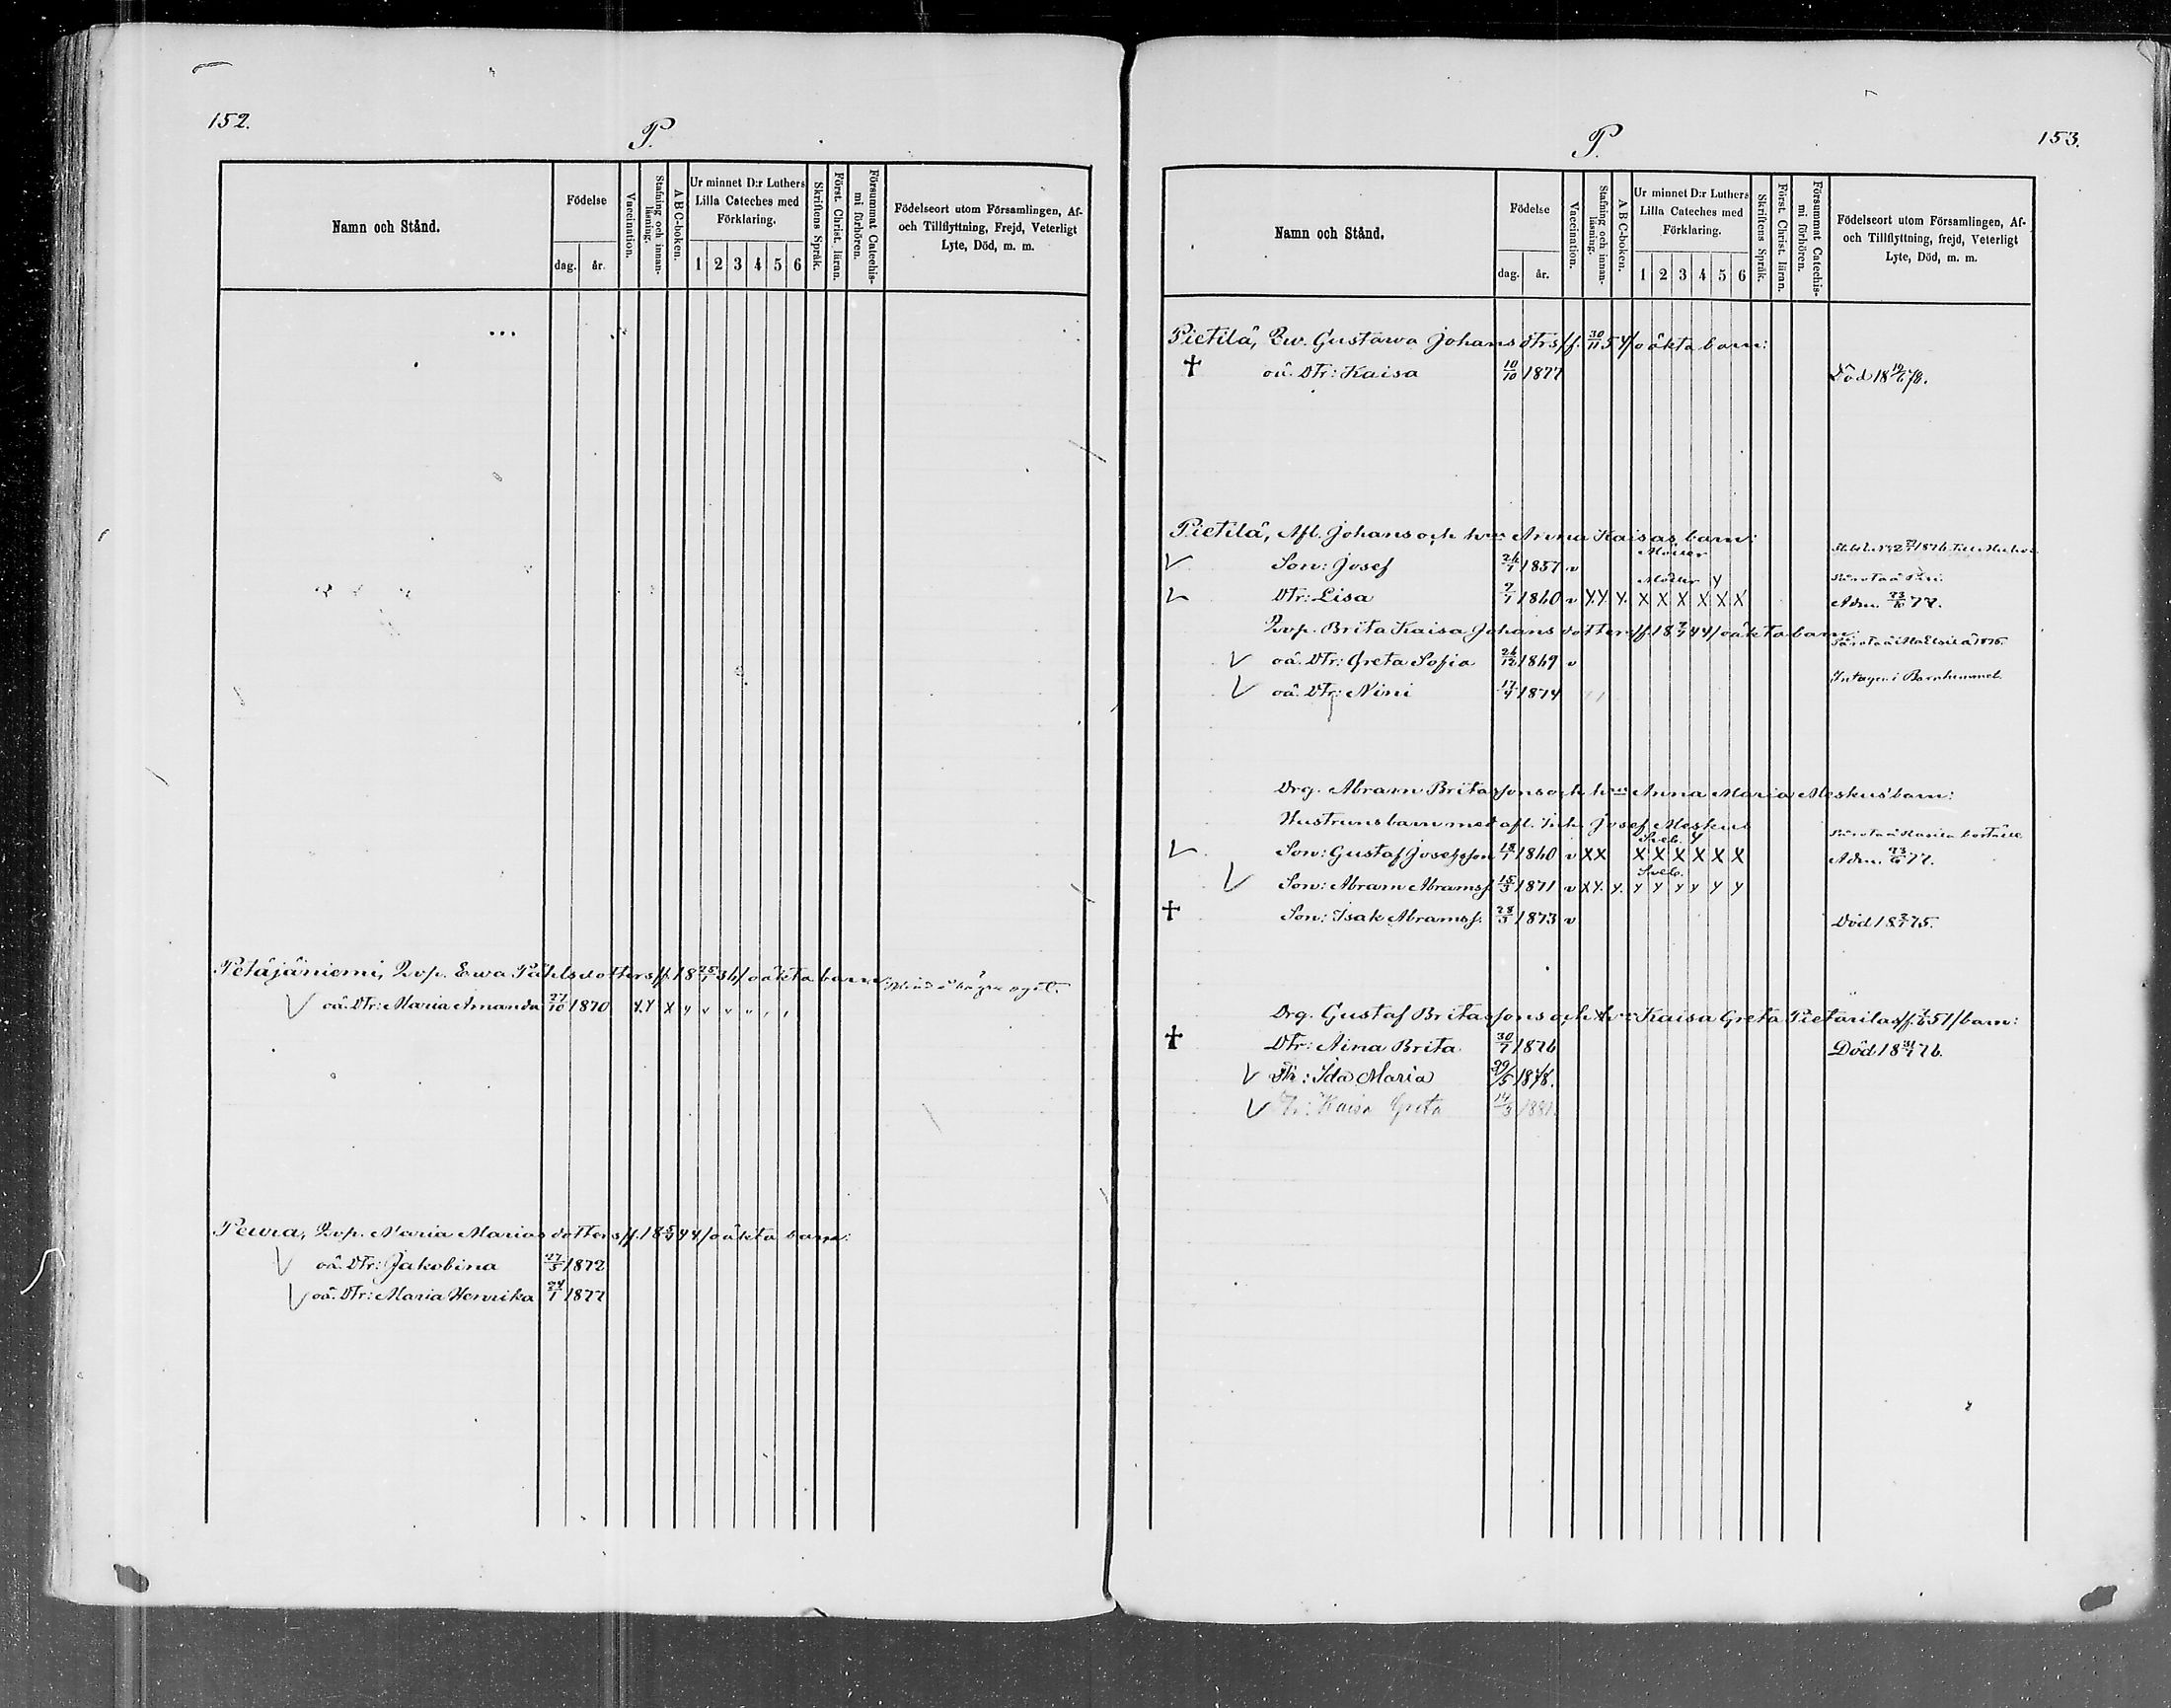 152.
P.
Namn och Stånd.
Födelse
dag. år.
Vaccination.
Stafning och innan-läsning.
A B C-boken.
Ur minnet D:r Luthers
Lilla Cateches med
Förklaring.
1 2 3 4 5 6
Skriftens Språk.
Först. Christ. läran.
Försummat Catechis-mi förhören.
Födelseort utom Församlingen, Af-
och Tillflyttning, Frejd, Veterligt
Lyte, Död, m. m.
Petäjäniemi, Qvp. Ewa Påhlsdotters /f. 18 25/1 36/ oäkta barn:
oä. Dtr: Maria Amanda 27/10 1870 Y.Y X
Peura, Qvp. Maria Mariasdotters /f. 18 44/ oäkta barn:
oä. Dtr: Jakobina 27/5 1872
oä. Dtr: Maria Henrika 24/1 1877
153.
P.
Namn och Stånd.
Födelse
dag. år.
Vaccination.
Stafning och innan-läsning.
A B C-boken.
Ur minnet D:r Luthers
Lilla Cateches med
Förklaring.
1 2 3 4 5 6
Skriftens Språk.
Först. Christ. läran.
Försummat Catechis-mi förhören.
Födelseort utom Församlingen, Af-
och Tillflyttning, frejd, Veterligt
Lyte, Död, m. m.
Pietilä, Qv. Gustawa Johansdtrs /f. 30/11 54/ oäkta barn:
† oä. Dtr: Kaisa 10/10 1877 Död 18 78.
Pietilä, Afl. Johans och hru Anna Kaisas barn:
Son: Josef 26/1 1857 v
Dtr: Lisa 9/1 1860 v Y.Y Y. X X X X X X Adm. 23/6 77.
Qvp. Brita Kaisa Johansdotters /f. 18 44/ oäkta barn:
oä. Dtr: Greta Sofia 26/12 1869 v
oä. Dtr: Nini 17/4 1874 Intagen i Barnhemmet.
Drg. Abram Britasons och hru Anna Maria Meskus' barn:
Hustruns barn med afl. Inh. Josef Meskus
Son: Gustaf Josefsson 18/1 1860 v X X X X X X X X Adm. 23/6 77.
Son: Abram Abramss. 15/3 1871 v X Y. Y. Y Y Y Y Y Y
† Son: Isak Abramss. 28/3 1873 v Död 18 75.
Drg. Gustaf Britasons och hru Kaisa Greta Pietarilas /f. 51/ barn:
† Dtr: Aina Brita 30/7 1876 Död 18 31/7 76.
Dtr: Ida Maria 29/5 1878.
Dtr: Kaisa Greta 14/3 1881.